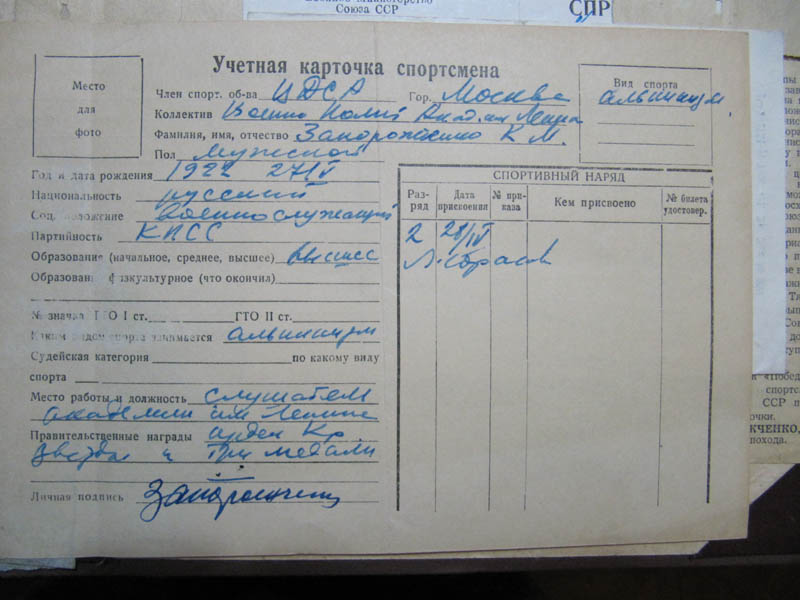 Союза ССР
СПР
Учетная карточка спортсмена
Место
для
фото
Член спорт. об-ва ЦДСА Гор. Москва
Коллектив Военно Полит Акад. им Ленина
Фамилия, имя, отчество Запорожченко К М.
Пол Мужской
Год и дата рождения 1922
Национальность русский
Соц. положение Военнослужащий
Партийность КПСС
Образование (начальное, среднее, высшее) высшее
Образование физкультурное (что окончил)
№ значка ГТО I ст. ГТО II ст.
Каким видом спорта занимается альпинизм
Судейская категория по какому виду
спорта
Место работы и должность слушатель
академии им Ленина
Правительственные награды орден Кр.
Звезды и три медали
Личная подпись
Вид спорта
альпинизм
СПОРТИВНЫЙ НАРЯД
Раз-
ряд
Дата
присвоения
№ при-
каза
Кем присвоено
№ билета
удостовер.
2
«Победа
спортс
ССР п
очки.
КЧЕНКО,
похода.